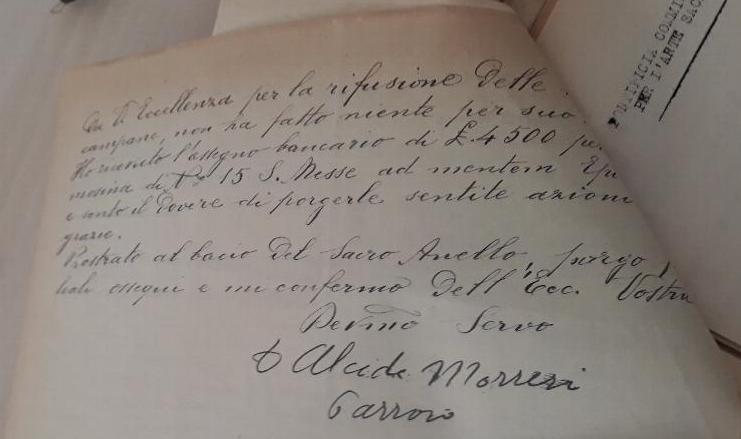 Da V. Eccellenza per la rifusione delle
campane, non ha fatto niente per suo
Ho ricevuto l'assegno bancario di £. 4500 pe
mosina di N° 15 S. Messe ad mentem Ep
e sento il dovere di porgerle sentite azioni
grazie.
Prostrato al bacio del Sacro Anello, porgo i
ossequi e mi confermo Dell'Ecc. Vostra
Dev.mo Servo
D Alcide Morresi
Parroco
PONTIFICIA COMMI
PER L'ARTE SAC